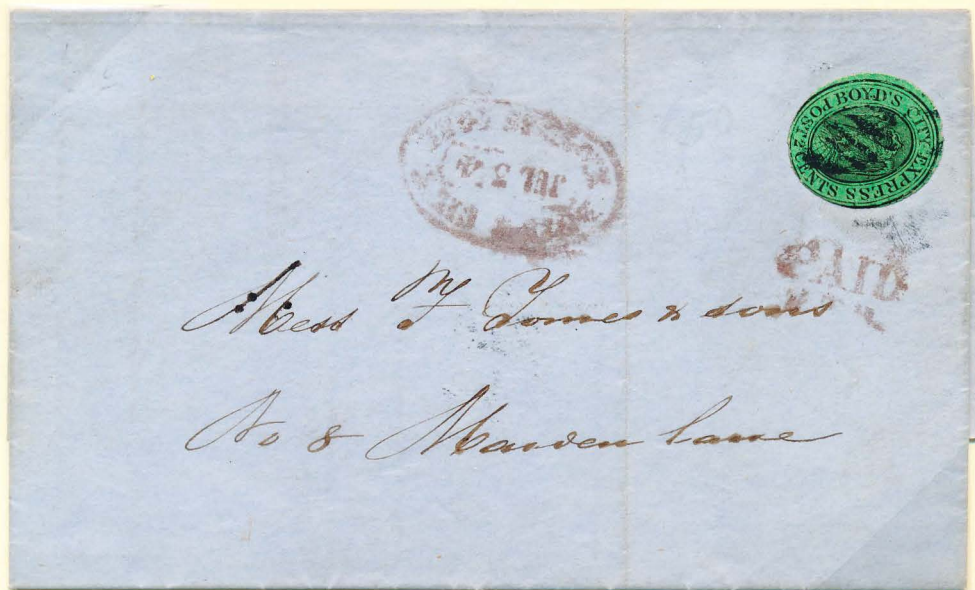 BOYD'S CITY EXPRESS POST 2 CENTS
JUL 3
PAID
Mess F Tomes & sons
No 8 Maiden lane